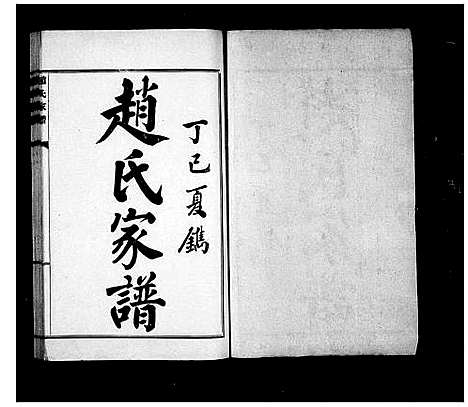 丁巳夏鐫
趙氏家譜